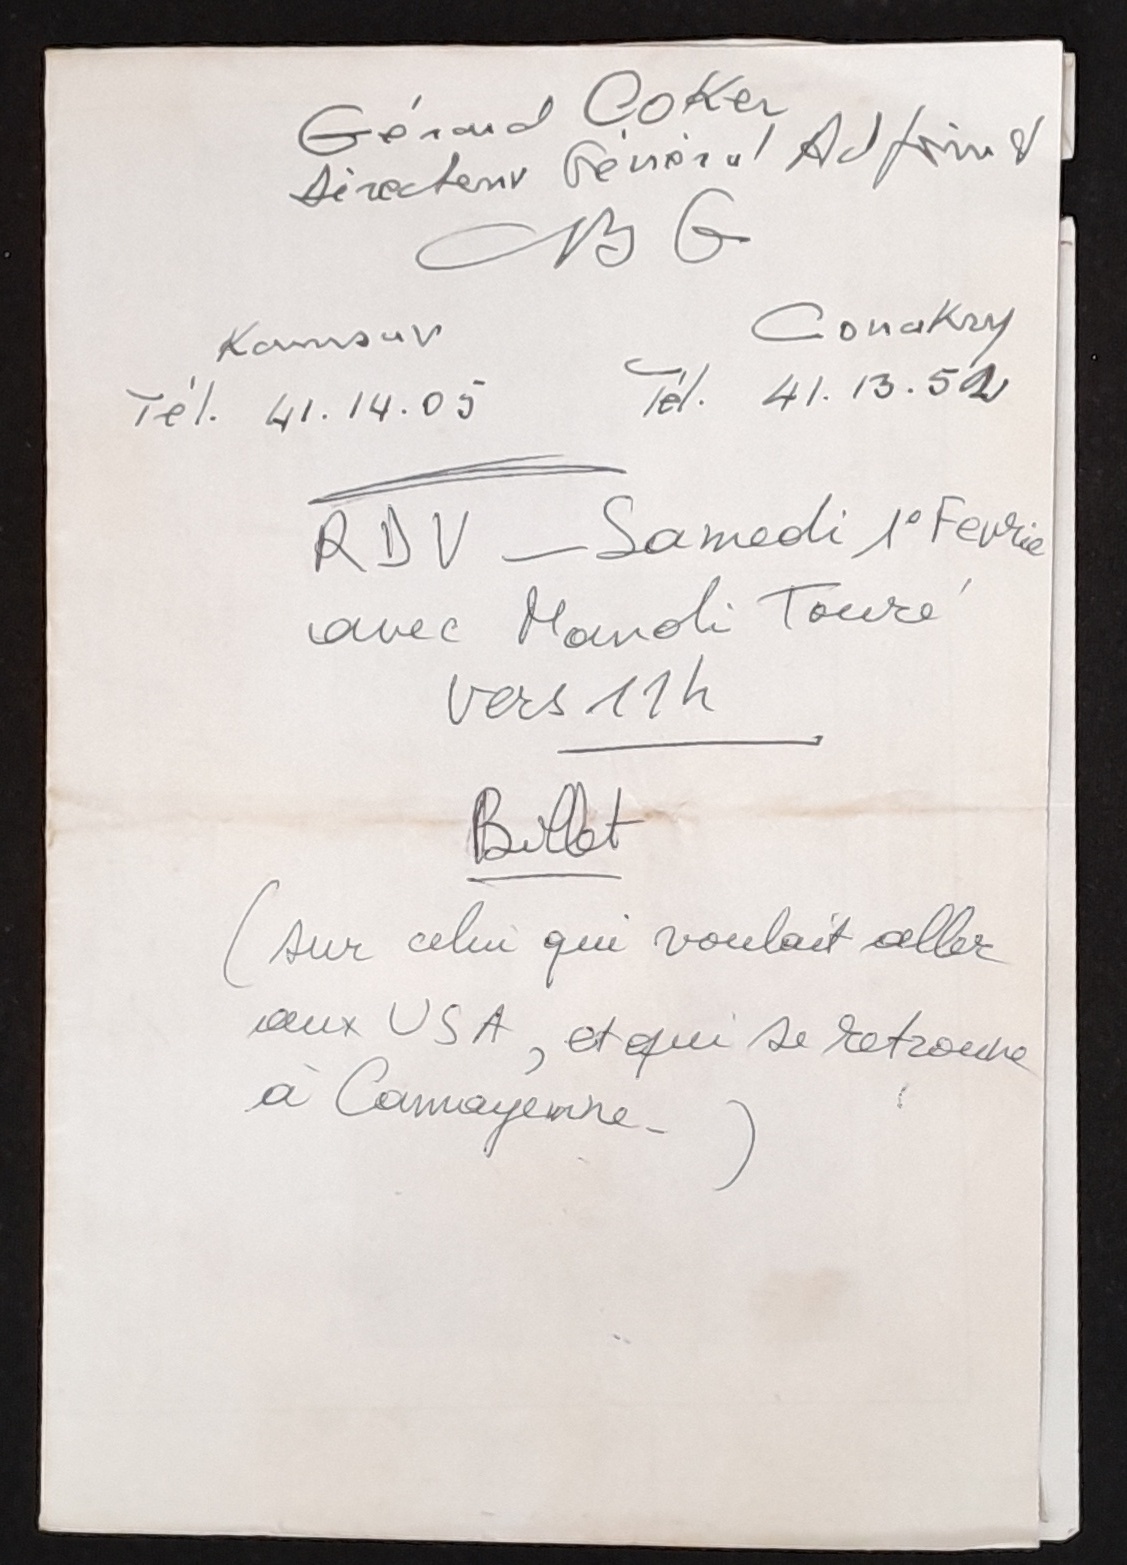 Gérard Coker
Directeur Général Adjoint
CBG
Kamsar
Conakry
Tél. 41.14.05
Tél. 41.13.52
RDV — Samedi 1° Fevrie
avec Mandi Touré
vers 11h
Billet
(sur celui qui voulait aller
aux USA, et qui se retrouve
à Camayenne. )